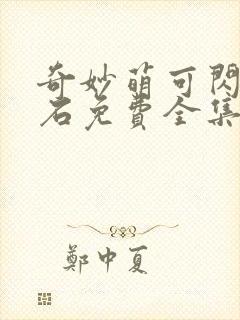 奇妙萌可閃
石免費全集
鄭中夏